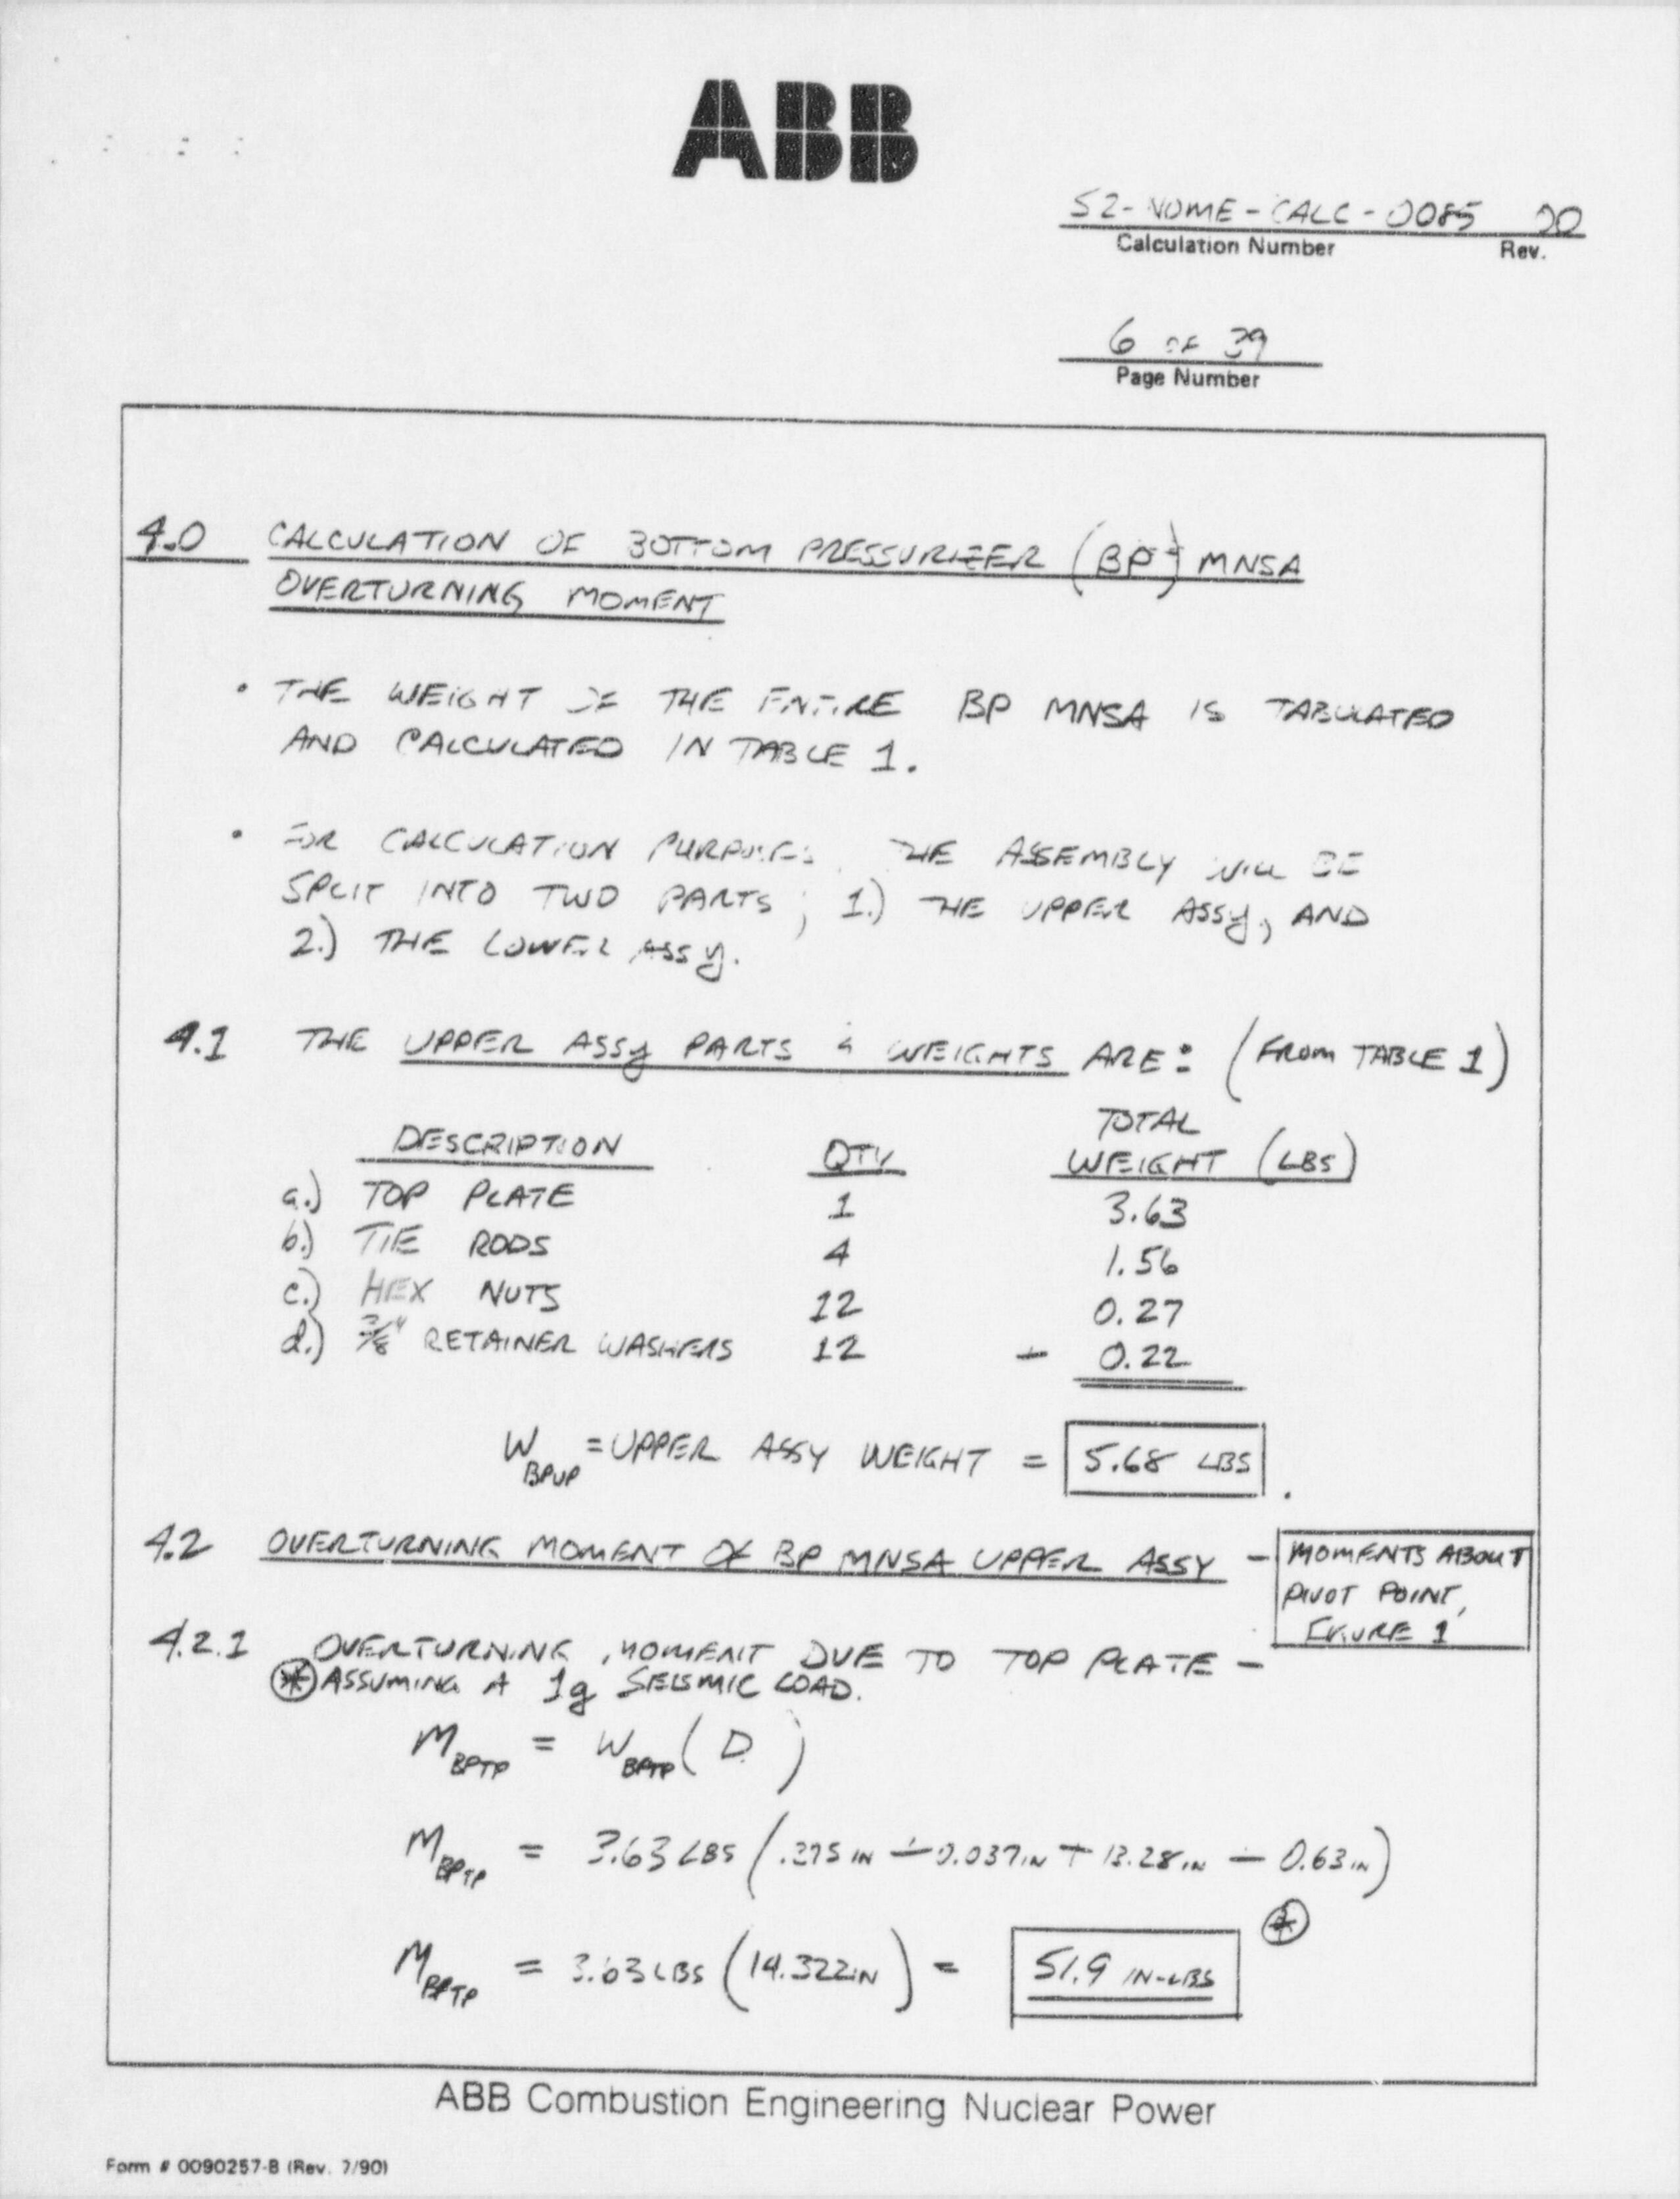 ABB
S2-NOME-CALC-0085 00
Calculation Number Rev.
6 OF 39
Page Number
4.0 CALCULATION OF BOTTOM PRESSURIZER (BP) MNSA
OVERTURNING MOMENT
• THE WEIGHT OF THE ENTIRE BP MNSA IS TABULATED
AND CALCULATED IN TABLE 1.
• FOR CALCULATION PURPOSES, THE ASSEMBLY WILL BE
SPLIT INTO TWO PARTS; 1.) THE UPPER ASSY, AND
2.) THE LOWER ASSY.
4.1 THE UPPER ASSY PARTS & WEIGHTS ARE: (FROM TABLE 1)
TOTAL
DESCRIPTION QTY WEIGHT (LBS)
a.) TOP PLATE 1 3.63
b.) TIE RODS 4 1.56
c.) HEX NUTS 12 0.27
d.) 3/8" RETAINER WASHERS 12 + 0.22
W BPUP = UPPER ASSY WEIGHT = 5.68 LBS.
4.2 OVERTURNING MOMENT OF BP MNSA UPPER ASSY - MOMENTS ABOUT
PIVOT POINT,
FIGURE 1
4.2.1 OVERTURNING MOMENT DUE TO TOP PLATE -
* ASSUMING A 1g SEISMIC LOAD.
M BPTP = W BPTP (D)
M BPTP = 3.63 LBS (.375 IN + 0.037 IN + 13.28 IN + 0.63 IN)
*
M BPTP = 3.63 LBS (14.322 IN) = 51.9 IN-LBS
ABB Combustion Engineering Nuclear Power
Form # 0090257-B (Rev. 7/90)